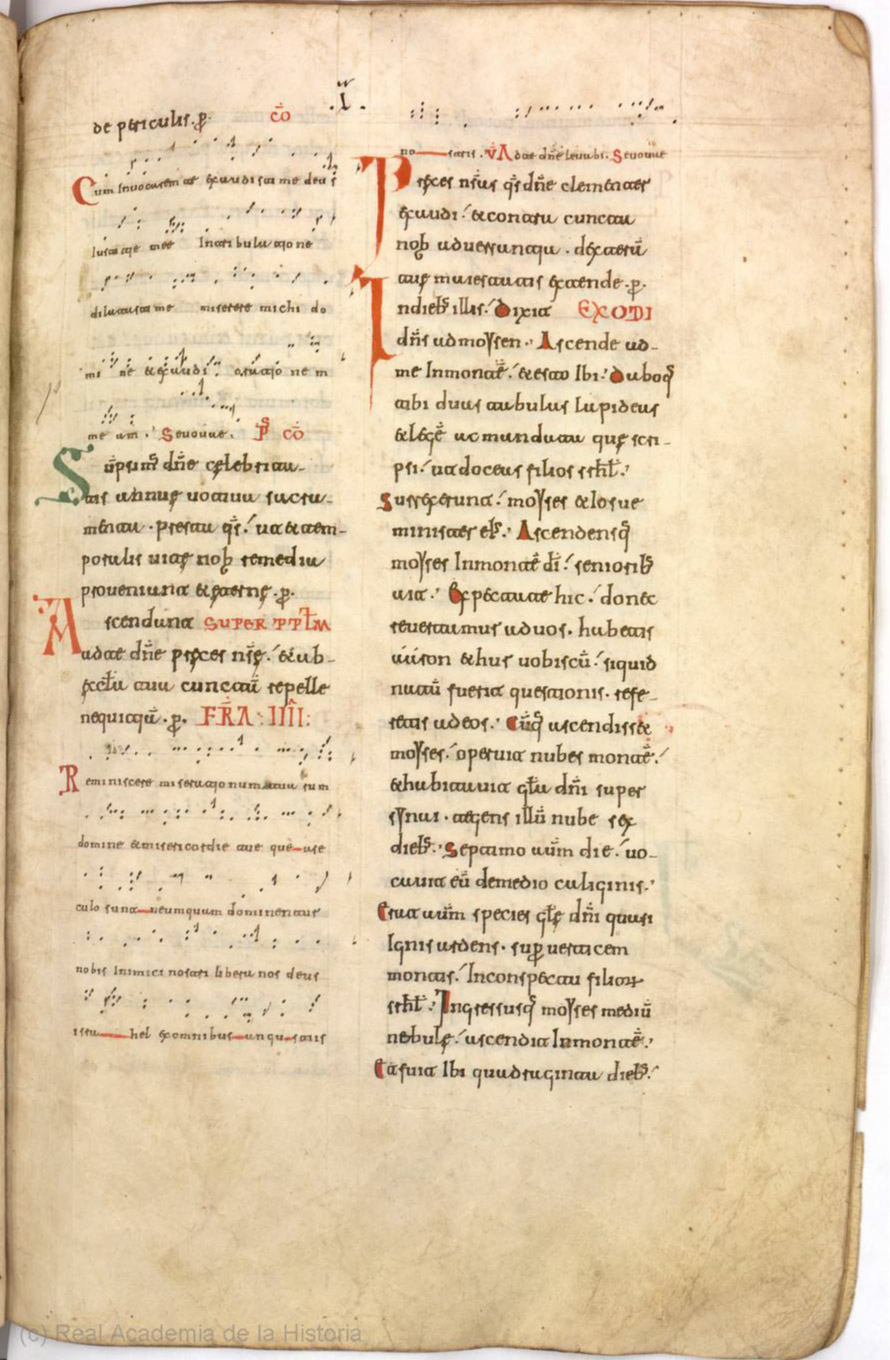 de periculis. ꝑ. c̄o
Cum Inuocarem te exaudisti me deus
Iustitie mee In tribulatione
dilatasti me miserere michi do
mi ne & exaudi orationem
me am. Seuouae. P̄S c̄o
Sūpsim᷒ dn̄e celebrita-
tis annue uotiua sacra-
m̄ta. presta qs̄. ut & tem-
poralis uite nob̄ remedia
proueniant & eterne. ꝑ.
Ascendant SUPER PPL̄M
ad te dn̄e preces nr̄e. & ab
eccl̄a tua cunctā repelle
nequitiā. ꝑ. FR̄A. IIIĪ:
Reminiscere miserationum tuarum
domine & misericordie tue que a se
culo sunt neumquam dominentur
nobis Inimici nostri libera nos deus
isra hel ex omnibus angustiis
.I.
no stris. V̄ Ad te dn̄e leuabi. Seuouae
Preces nr̄as qs̄ dn̄e clementer
exaudi. & contra cuncta
nob̄ aduersantia. dexterā
tue maiestatis extende. ꝑ.
In dieb᷒ illis. Dixit EXODI
dn̄s ad moysen. Ascende ad
me In montē. & esto Ibi. Daboq̄
tibi duas tabulas lapideas
& legē ac mandata que scri-
psi. ut doceas filios isrl̄.
Surrexerunt moyses & Iosue
minister ei᷒. Ascendensq̄
moyses In montē dī. seniorib᷒
ait. Expectate hic. donec
reuertamur ad uos. habetis
aaron & hur uobiscū. siquid
natū fuerit questionis. refe-
retis ad eos. Cūq̄ ascendiss&
moyses. operuit nubes montē.
& habitauit gl̄a dn̄i super
synai. tegens illū nube sex
dieb᷒. Septimo aūm die. uo-
cauit eū de medio caliginis.
Erat aūm species gl̄e dn̄i quasi
Ignis ardens. suꝑ uerticem
montis. In conspectu filioꝝ
isrl̄. Ingressusq̄ moyses mediū
nebule. ascendit In montē.
Et fuit Ibi quadraginta dieb᷒.
(c) Real Academia de la Historia